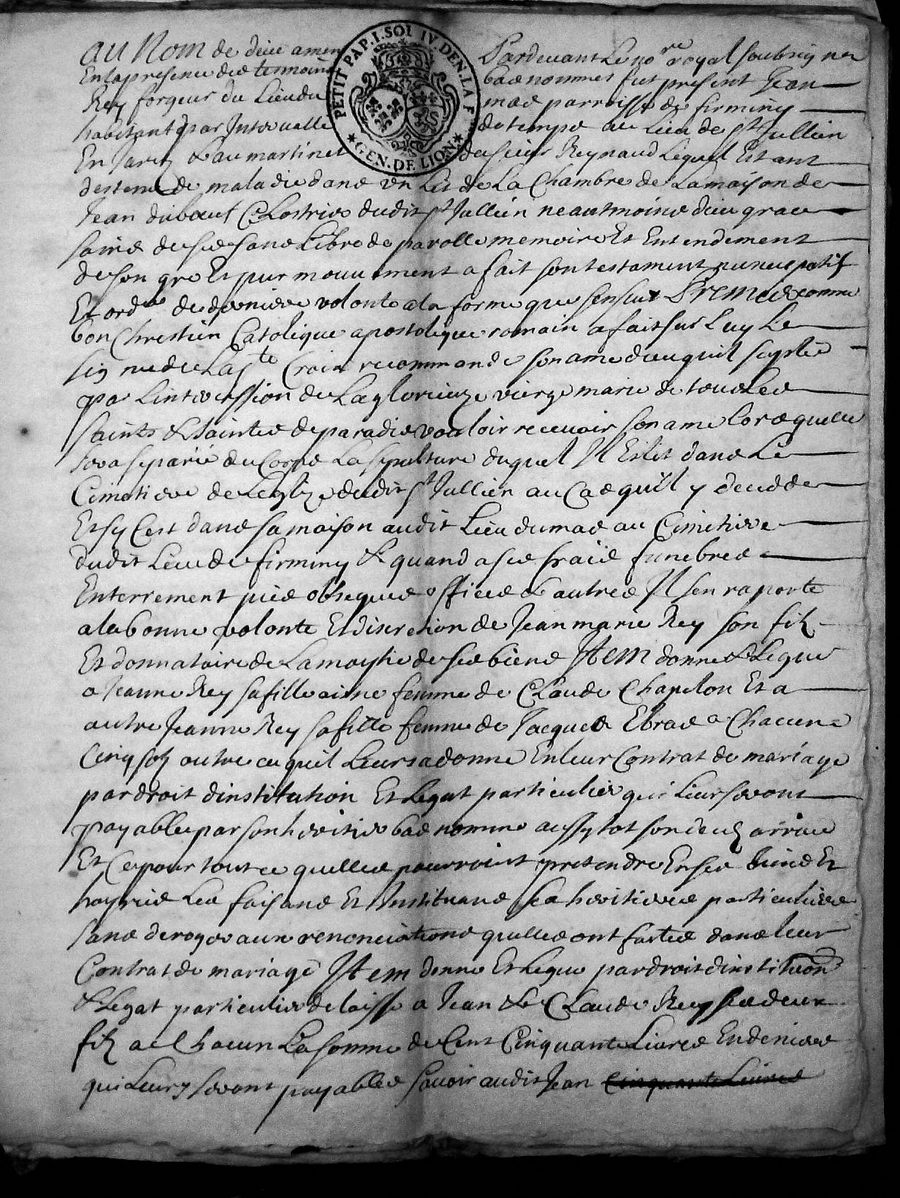 au Nom de dieu amen Pardevant le no.re royal soubsigne
En la presence des temoins bas nommes fut present Jean
Rey forgeur du Lieu du mas parroisse de firminy
habitant par Intervalle de temps au Lieu de st Jullien
En Jarez & au martinet de sieur Reynaud lequel Estant
destenu de maladie dans un Lit de La Chambre de La maison de
Jean duboeuf Clostrier dudit st Jullien neautmoins dieu grace
saine de ses sans Libre de parolle memoire Et Entendement
de son gre Et pur mouvement a fait son testament nuncupatif
Et ordce de derniere volonte a la forme que sensuit Premierement comme
bon Chrestien Catolique apostolique romain a fait sur Luy Le
signe de La ste Croix recommande son ame dieu quil suplie
par Lintercession de La glorieuze vierge marie de tous Les
saints & saintes de paradis vouloir recevoir son ame Lors quelle
sera separée du Corps La sepulture duquel Il Eslit dans Le
Cimetiere de Leglize dudit st Jullien au Cas quil y decedde
Et sy Cest dans sa maison audit Lieu du mas au Cimetiere
dudit Lieu de firminy Et quand a ses fraix funebres
Enterrement pies obseques offices & autres Il sen raporte
a la bonne volonte Et discretion de Jean marie Rey son filz
Et donnataire de La moytie de ses biens Item donne & legue
a Jeanne Rey sa fille ainee femme de Claude Chapelon Et a
autre Jeanne Rey sa fille femme de Jacques Ebras a Chacune
Cinq solz outre ce quil Leurs a donne En leur Contrat de mariage
par droit dinstitution Et Legat particulier qui Leur seront
payables par son heritier bas nomme aussy tot son deces arrive
Et Ce pour tout ce quelles pourroint pretendre En ses biens Et
hoyrie Les faisans Et Instituans ses heritieres particulieres
sans deroger aux renonciations quelles ont faites dans leur
Contrat de mariage Item donne Et Legue par droit dinstitution
& Legat particulier delaisse a Jean & Claude Rey ses deux
filz a Chacun La somme de Cent Cinquante Livres En deniers
qui Leurs seront payables savoir audit Jean Cinquante Livres
PETIT PAP. I. SOL IV DEN. LA F.
GEN. DE LION